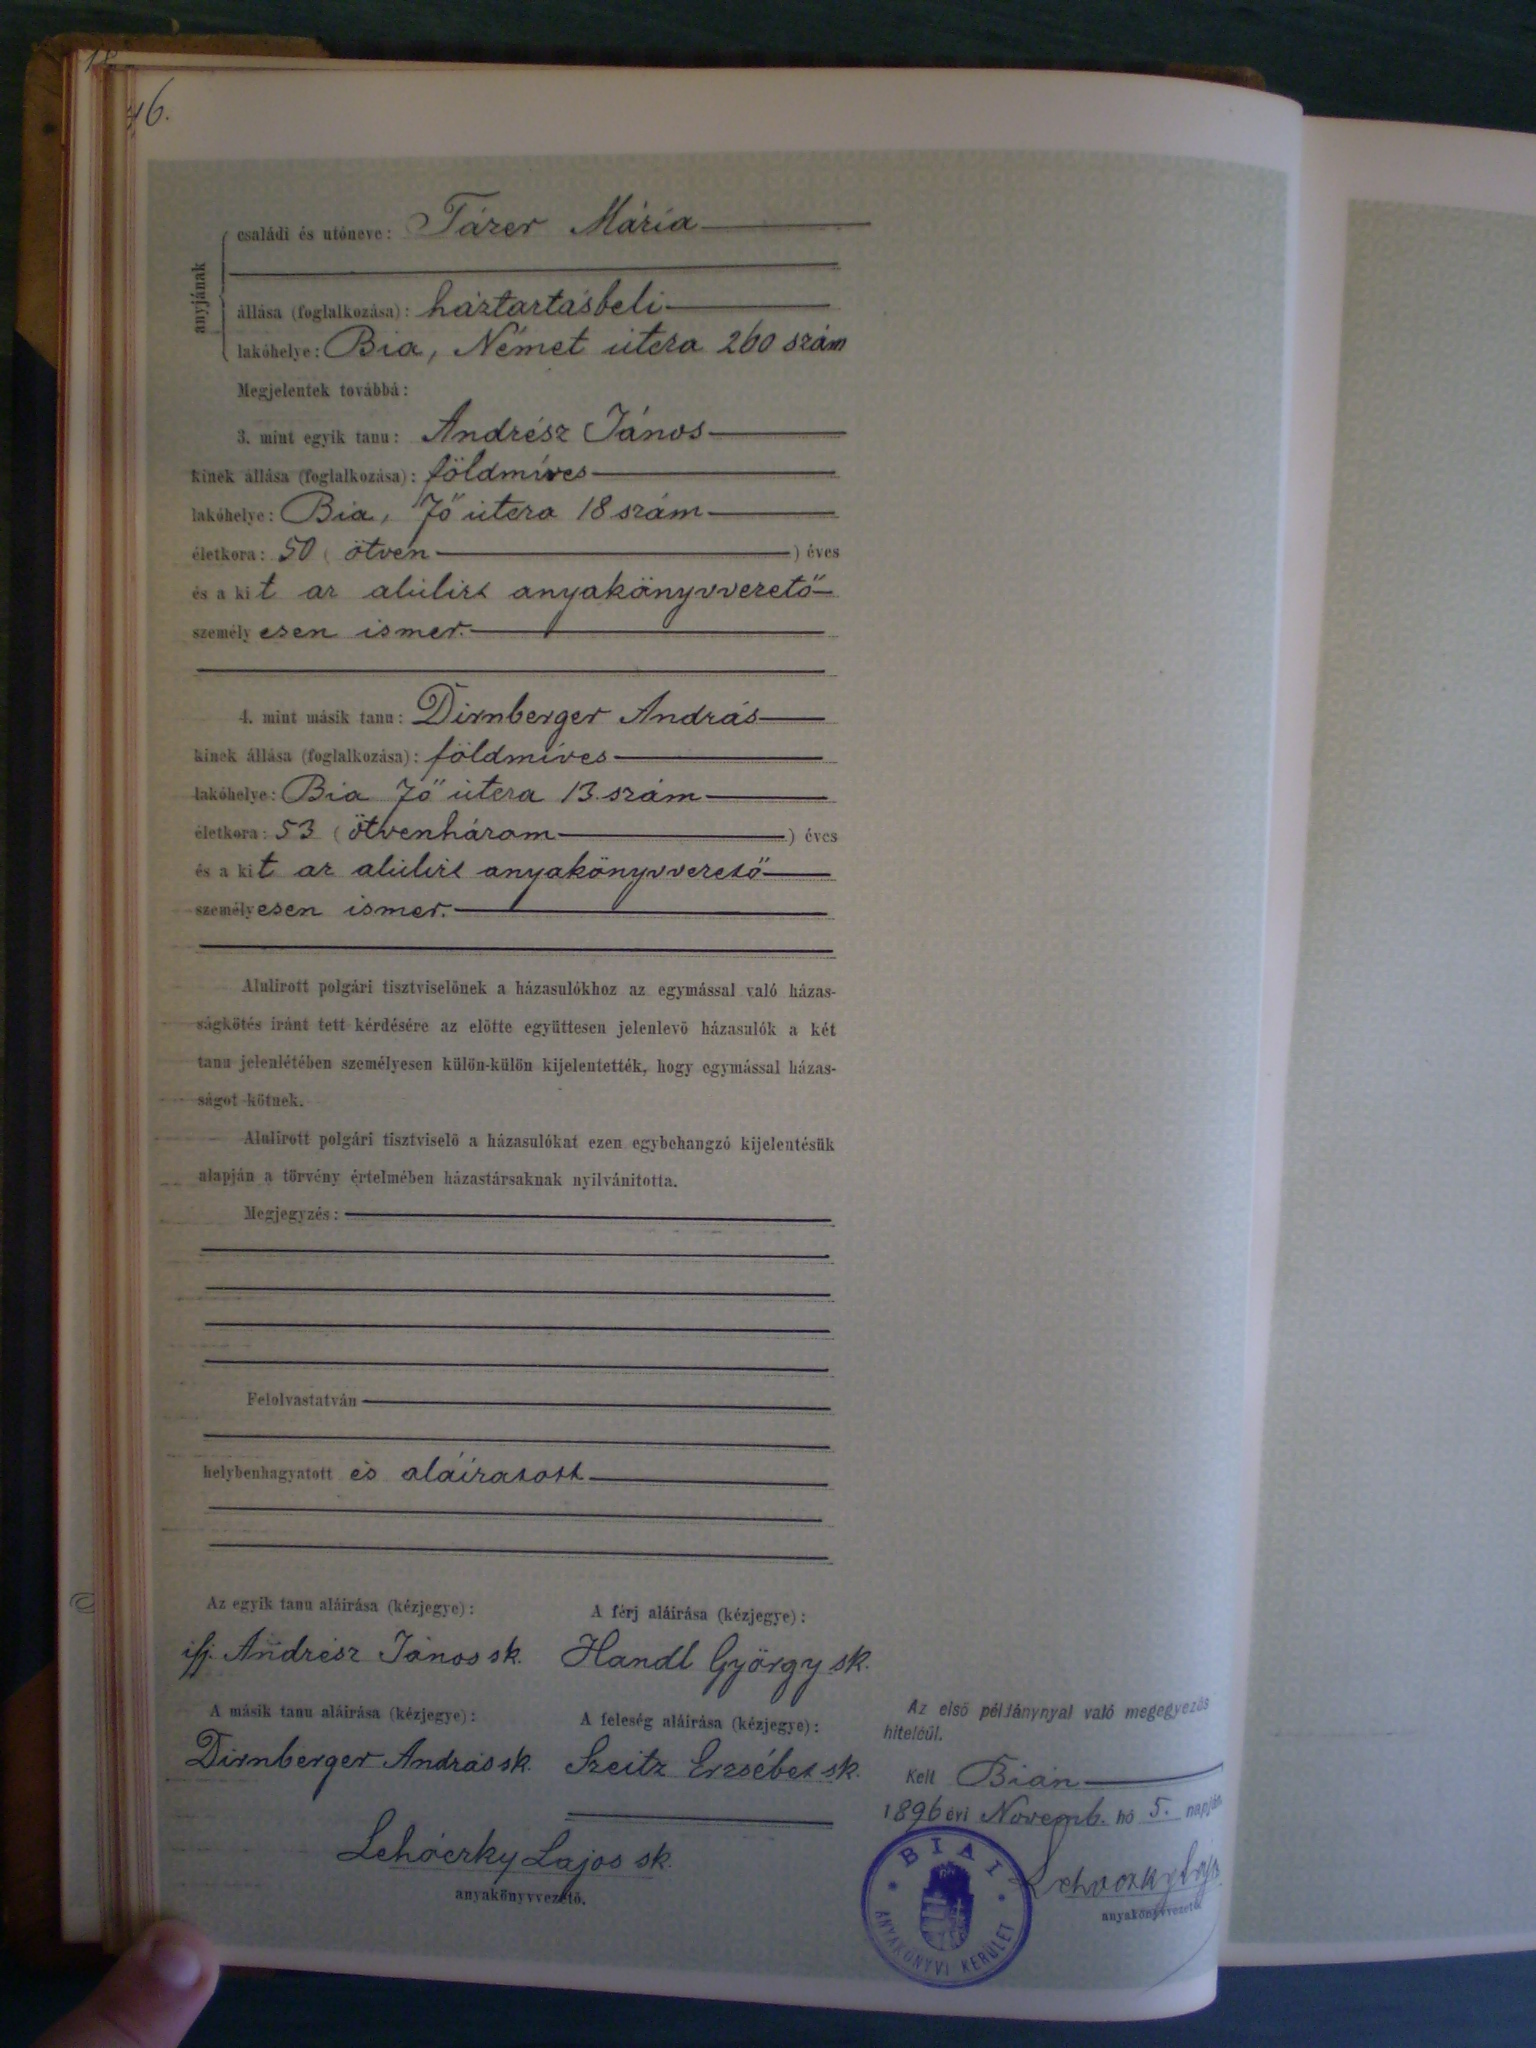 46.
anyjának
családi és utóneve: Tázer Mária
állása (foglalkozása): háztartásbeli
lakóhelye: Bia, Német útcza 260 szám
Megjelentek továbbá:
3. mint egyik tanu: Andrész János
kinek állása (foglalkozása): földmíves
lakóhelye: Bia, Fő útcza 18 szám
életkora: 50 (ötven) éves
és a kit az alúlirt anyakönyvvezető
személyesen ismer.
4. mint másik tanu: Dirnberger András
kinek állása (foglalkozása): földmíves
lakóhelye: Bia Fő útcza 13. szám
életkora: 53 (ötvenhárom) éves
és a kit az alúlirt anyakönyvvezető
személyesen ismer.
Alulirott polgári tisztviselőnek a házasulókhoz az egymással való házas-
ságkötés iránt tett kérdésére az előtte együttesen jelenlevő házasulók a két
tanu jelenlétében személyesen külön-külön kijelentették, hogy egymással házas-
ságot kötnek.
Alulirott polgári tisztviselő a házasulókat ezen egybehangzó kijelentésük
alapján a törvény értelmében házastársaknak nyilvánitotta.
Megjegyzés:
Felolvastatván
helybenhagyatott és aláíratott
Az egyik tanu aláirása (kézjegye): A férj aláirása (kézjegye):
ifj. Andrész János sk. Handl György sk.
A másik tanu aláirása (kézjegye): A feleség aláirása (kézjegye):
Dirnberger András sk. Szeitz Erzsébet sk.
Lehóczky Lajos sk.
anyakönyvvezető.
Az első példánynyal való megegyezés
hiteléül.
Kelt Bián
1896 évi Novemb. hó 5. napján
Lehoczky Lajos
anyakönyvvezető
BIAI
ANYAKÖNYVI KERÜLET